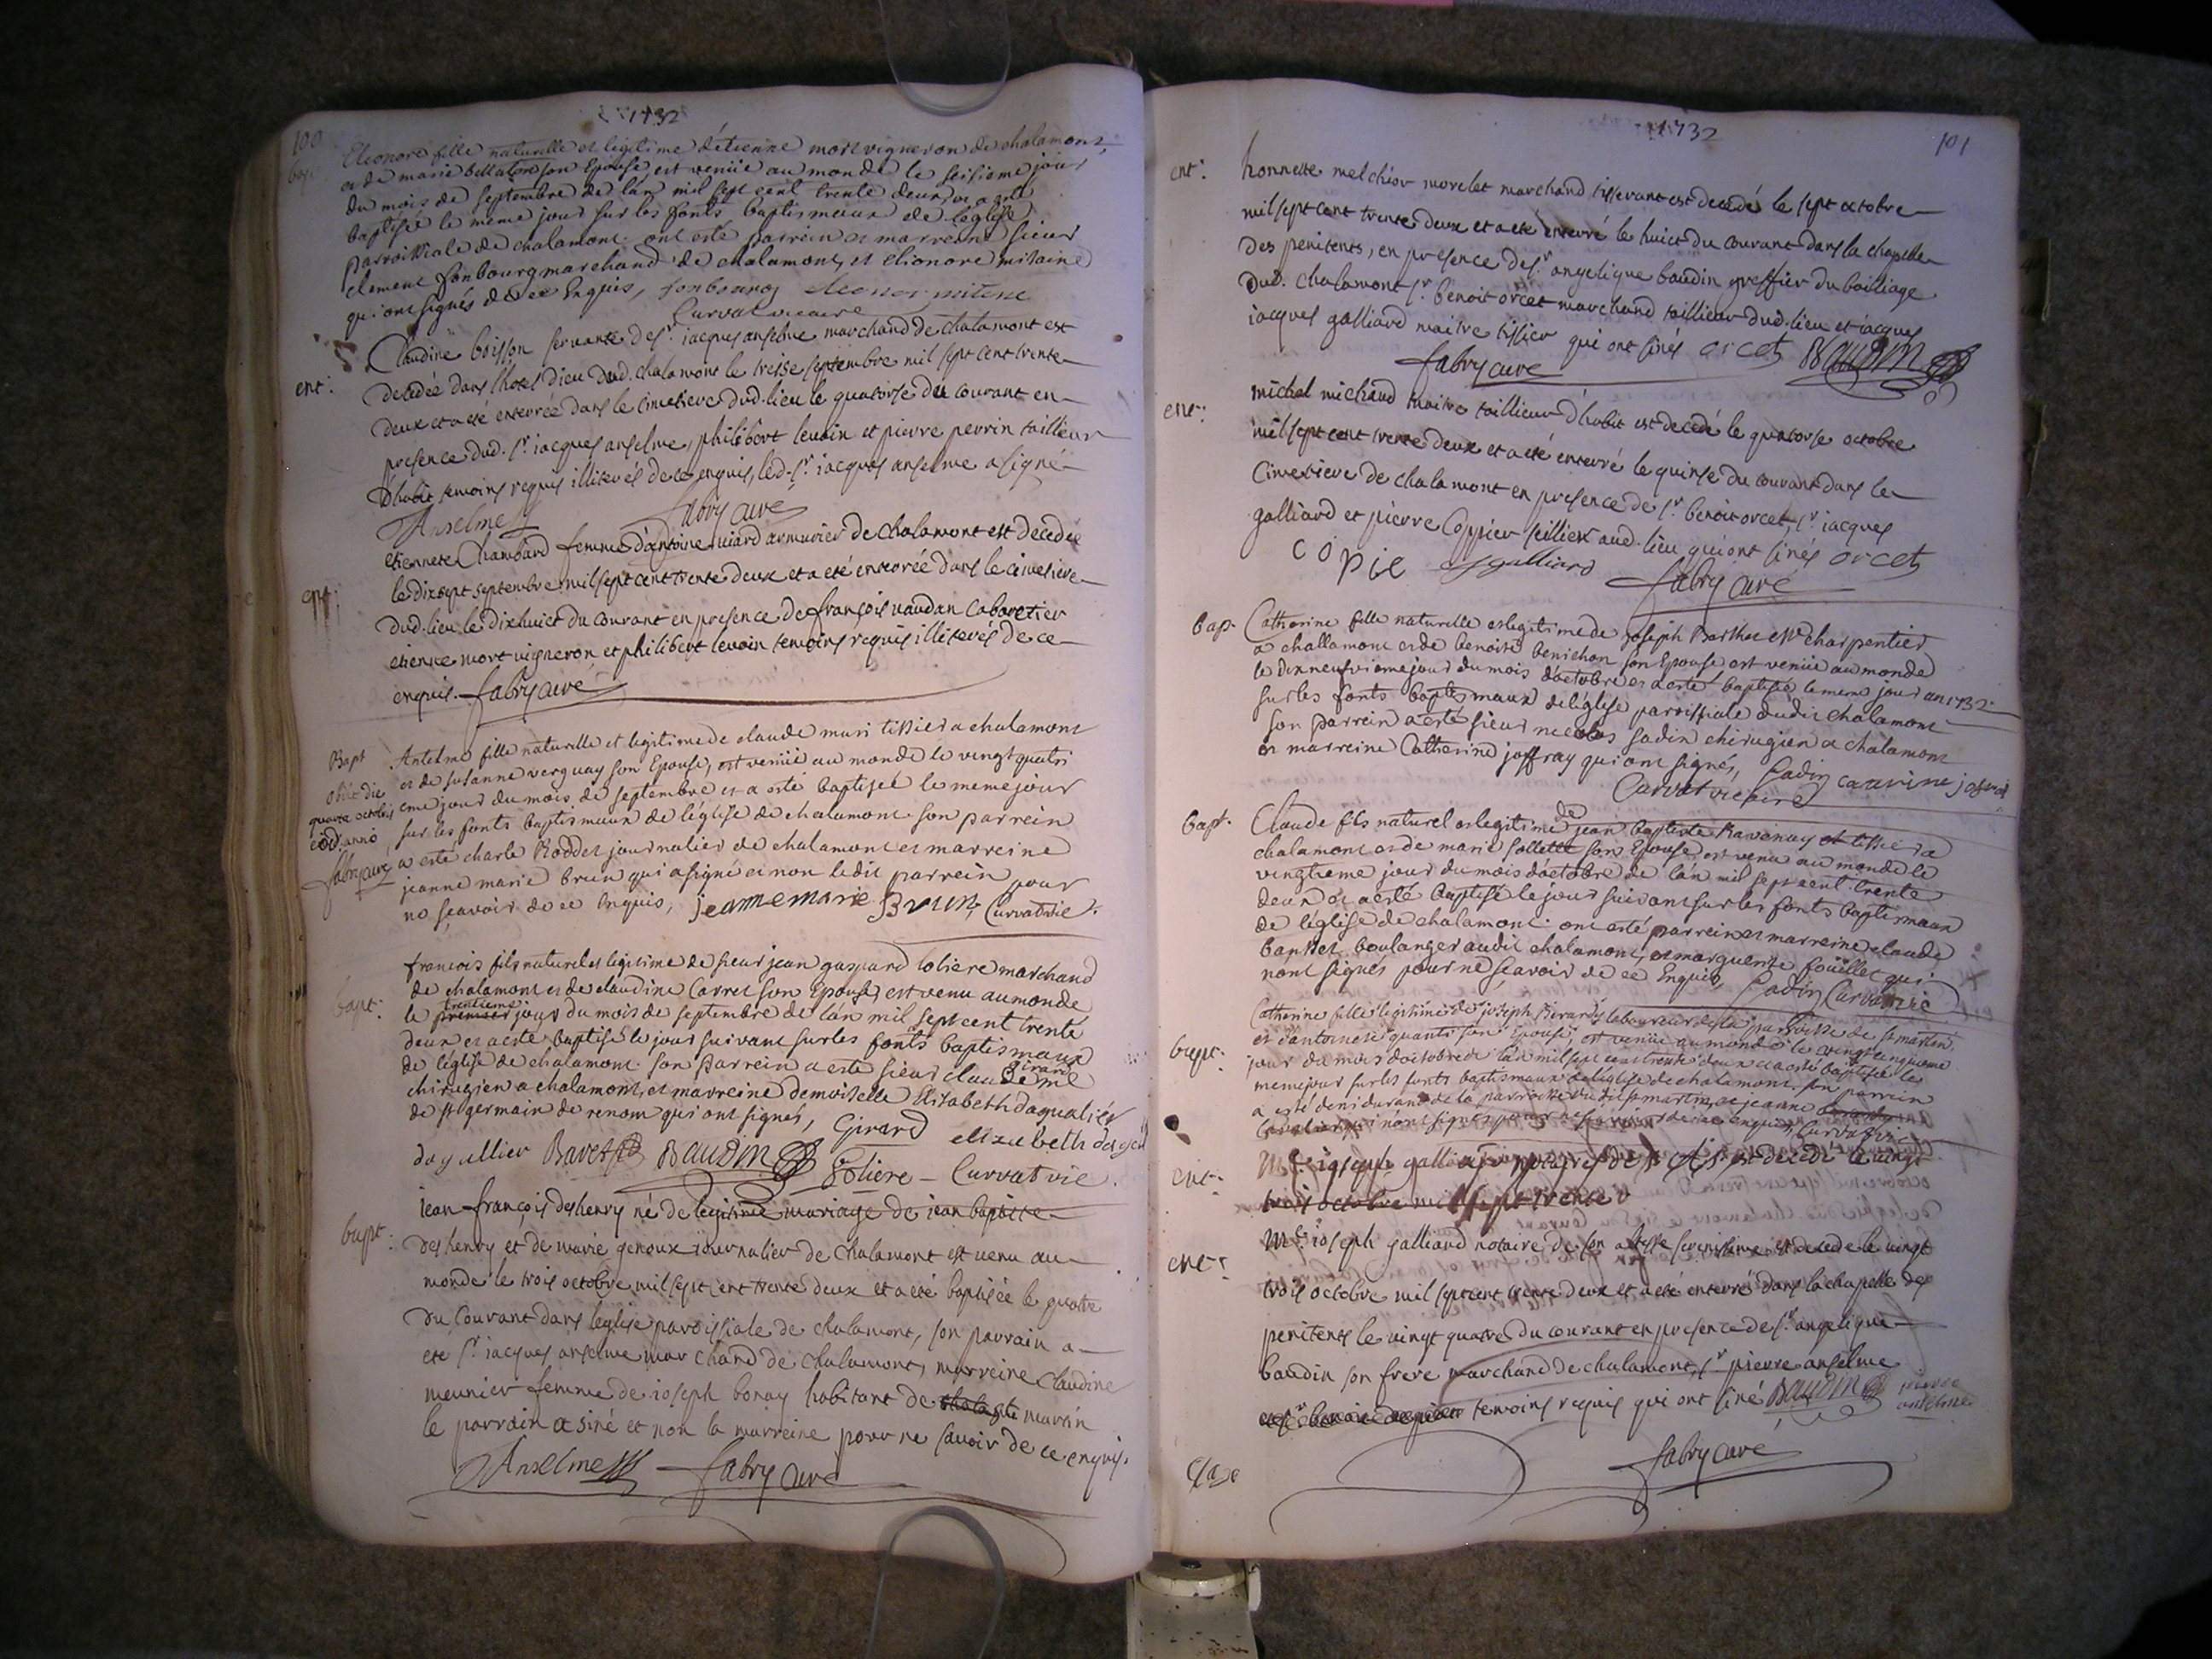 1732
100
bap:
Eleonore fille naturelle et legitime d'étienne mort vigneron de chalamont,
et de marie son Epouse, est venüe au monde le seisieme jour
du mois de septembre de lán mil sept cent trente deux, et a esté
baptisée le meme jour sur les fonts baptismaux de l'église
parroissiale de chalamont. ont esté parrein et marreine sieur
clement fonbourg marchand de chalamont, et elionore mitaine
qui ont signés de ce Enquis, fonbourg eleonor mitene
Curvat vicaire
ent:
Claudine boisson servante de sr. iacques anselme marchand de chalamont est
decedée dans l'hotel Dieu dud. chalamont le treise septembre mil sept cent trente
deux et a eté enterrée dans le cimetiere dud. lieu le quatorse du courant en
presence dud. sr. iacques anselme, philibert levain et pierre perrin tailleur
d'habit temoins requis illiterés de ce enquis, led. sr. iacques anselme a signé
Anselme fabry curé
ent:
etiennete Chambard femme d'antoine viard armurier de chalamont est decedée
le dixsept septembre mil sept cent trente deux et a eté enterrée dans le cimetiere
dud. lieu le dixhuict du courant en presence de françois vaudan cabaretier
etienne mort vigneron et philibert levain temoins requis illiterés de ce
enquis. fabry curé
Bapt
Antelme fille naturelle et legitime de claude muri tissier a chalamont
et de susanne verguay son Epouse, est venüe au monde le vingt quatri
obiit die
quarta octobris
eod. anno
fabry curé
eme jour du mois de septembre et a esté baptisée le meme jour
sur les fonts baptismaux de l'église de chalamont. son parrein
a esté charle Roddet journalier de chalamont et marreine
jeanne marie brun qui a signé et non ledit parrein pour
ne sçavoir de ce Enquis, jeanne marie Brun, Curvat vic.
bapt:
francois fils naturel et legitime de sieur jean gaspard toliere marchand
de chalamont et de claudine Carret son Epouse, est venu au monde
trentieme
le premier jour du mois de septembre de lán mil sept cent trente
deux et a esté baptisé le jour suivant sur les fonts baptismaux
de l'église de chalamont. son parrein a esté sieur claude me
Girard
chirugien a chalamont, et marreine demoiselle Elisabeth daquallier
de st germain de renom qui ont signés, Girard elizabeth
dagallier Bavet Baudin toliere Curvat vic.
bapt:
iean françois deshenry né de legitime mariage de iean baptiste
deshenry et de marie genoux iournalier de chalamont est venu au
monde le trois octobre mil sept cent trente deux et a eté baptisée le quatre
du courant dans leglise paroissiale de chalamont, son parrain a
eté sr. iacques anselme marchand de chalamont, marreine claudine
meunier femme de ioseph bonay habitant de
le parrain a siné et non la marreine pour ne savoir de ce enquis.
Anselme fabry curé
1732
101
ent:
honneste melchior morelet marchand tisserant est decedé le sept octobre
mil sept cent trente deux et a eté enterré le huict du courant dans la chapelle
des penitents, en presence de sr. angelique baudin greffier du bailliage
dud. chalamont sr. benoit orcet marchand taillieur dud. lieu et iacques
iacques galliard maitre tissier qui ont sinés orcet Baudin
fabry curé
ent:
michel michaud maitre taillieur d'habit est decedé le quatorse octobre
mil sept cent trente deux et a eté enterré le quinse du courant dans le
cimetiere de chalamont en presence de sr. benoit orcet, sr. iacques
galliard et pierre Coppier seillier aud. lieu qui ont sinés orcet
copie galliard fabry curé
bap.
Catherine fille naturelle et legitime de joseph Barthet charpentier
a challamont et de benoite benichon son Epouse est venüe au monde
le dixneufvieme jour du mois d'octobre et a esté baptisée le meme jour an 1732
sur les fonts baptismaux de l'église parroissiale dudit chalamont
son parrein a esté sieur nicolas sadin chirugien a chalamont
et marreine Catherine joffray qui ont signés, Sadin catarine jofrai
Curvat vicaire
bapt.
de
Claude fils naturel et legitime jean baptiste Ravanay et tissier a
chalamont et de marie sollet son Epouse est venu au monde le
vingtieme jour du mois d'octobre de lán mil sept cent trente
deux et a esté baptisé le jour suivant sur les fonts baptismaux
de l'église de chalamont. ont esté parrein et marreine claude
banset boulanger audit chalamont, et marguerite foüillet qui
nont signés pour ne sçavoir de ce Enquis, Sadin Curvat vic
bapt.
Catherine fille legitime de joseph Girard laboureur de la parroisse de st martin
et d'antoinete quanti son Epouse, est venüe au monde le vingt cinquieme
jour du mois d'octobre de lán mil sept cent trente deux et a esté baptisée le
meme jour sur les fonts baptismaux de l'église de chalamont. son parrein
a esté deni durand de la parroisse dudit st martin, et jeanne
qui n'ont signés pour ne sçavoir de ce enquis, Curvat vic
ent:
Me. ioseph galliard notaire de S. A. S. est decedé le vingt
trois octobre mil sept trente
ent:
Me. ioseph galliard notaire de son altesse serenissime est decedé le vingt
trois octobre mil sept cent trente deux et a eté enterré dans la chapelle des
penitents le vingt quatre du courant en presence de sr. angelique
baudin son frere marchand de chalamont, sr pierre anselme
temoins requis qui ont siné Baudin pierre
anselme
fabry curé